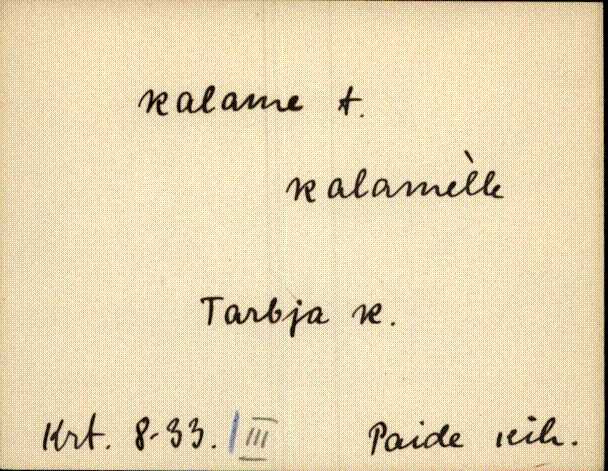 kalame t.
kalamèlle
Tarbja k.
Krt. 8-33. III Paide kih.